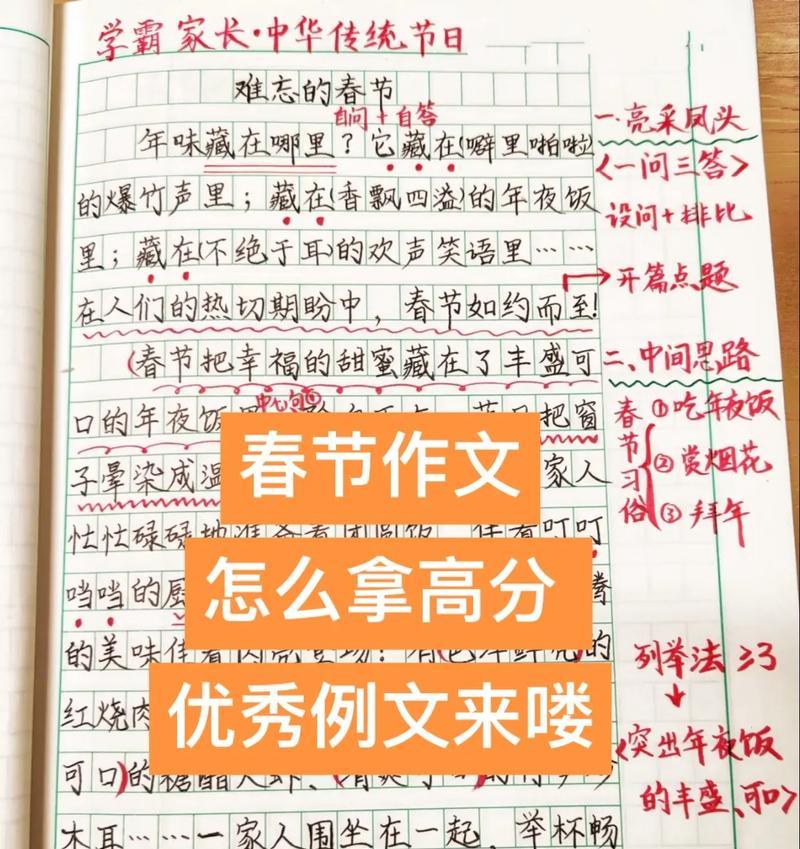 学霸家长·中华传统节日
难忘的春节
自问+自答
年味藏在哪里？它藏在(噼里啪啦
的爆竹声里；藏在(香飘四溢)的年夜饭
里；藏在(不绝于耳)的欢声笑语里……
在人们的热切期盼中，春节如约而至!
(春节把幸福的甜蜜藏在了丰盛可
中心句
口的年夜饭里 把窗
子晕染成温 家人
忙忙碌碌地准备着团圆饭 叮叮
当当的厨
的美味 的
红烧肉
可口)的糖醋大虾、
木耳……一家人围坐在一起，举杯畅
一、亮采凤头
<一问三答>
设问+排比
开篇点题
二、中间思路
春节习俗
①吃年夜饭
②赏烟花
③拜年
列举法≥3
<突出年夜饭
的丰盛、可口>
春节作文
怎么拿高分
优秀例文来喽